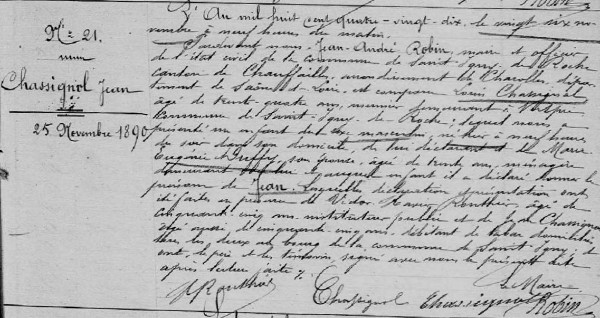 N° 21.
Chassignol Jean
25 Novembre 1890
L'An mil huit cent quatre-vingt-dix, le vingt six no-
vembre à neuf heures du matin.
Pardevant nous Jean-André Robin, maire et officier
de l'état civil de la commune de Saint-Igny-de-Roche
canton de Chauffailles, arrondissement de Charolles dépar-
tement de Saône-et-Loire, est comparu Louis Chassignol
âgé de trente-quatre ans, menuisier demeurant à
commune de Saint-Igny-de-Roche; lequel nous a
présenté un enfant de sexe masculin, né hier à neuf heures
du soir dans son domicile, de lui déclarant et de Marie
Eugénie son épouse, âgée de trente ans, ménagère
demeurant et auquel enfant il a déclaré donner le
prénom de Jean. Laquelle déclaration et présentation ont
été faites en présence de Victor âgé de
cinquante-cinq ans instituteur public et de Jean Chassignol
âgé aussi de cinquante-cinq ans, débitant de tabac domiciliés
tous les deux au bourg de la commune de Saint-Igny; et
ont, le père et les témoins, signé avec nous le présent acte
après lecture faite.
Le Maire
Chassignol Chassignol Robin